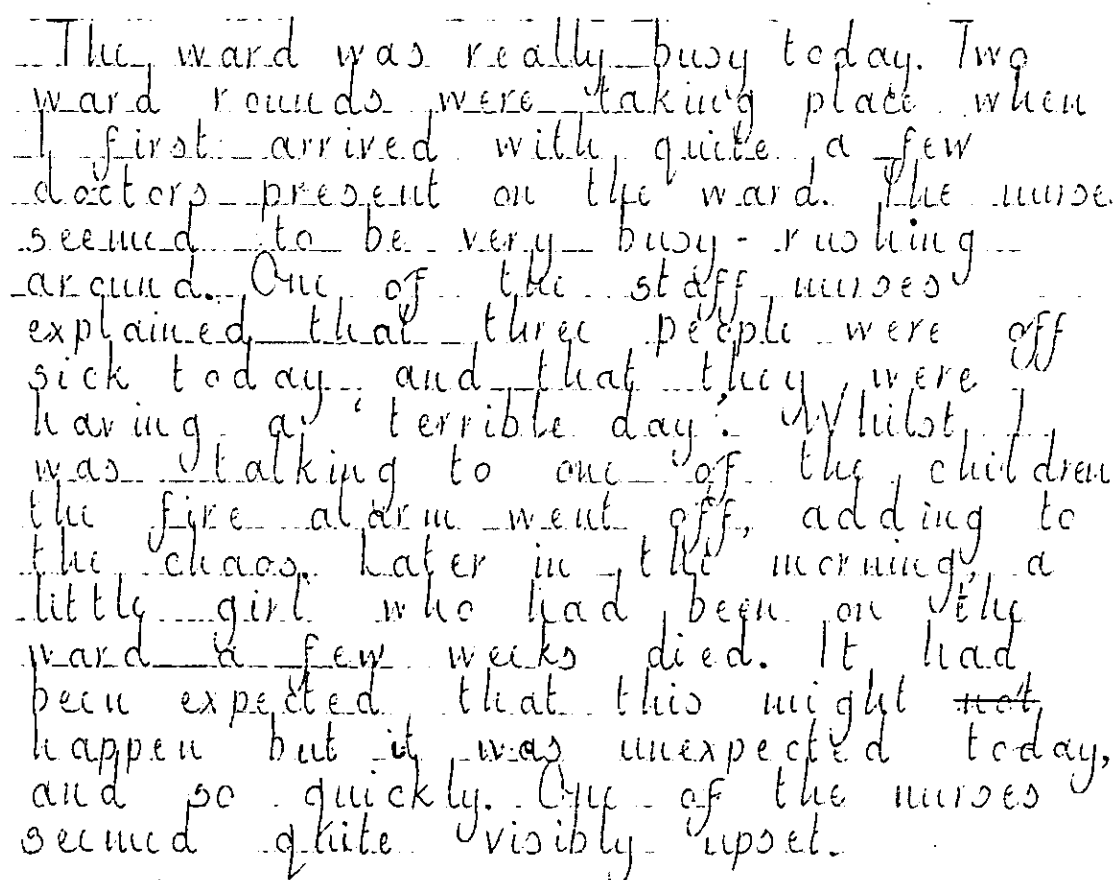 The ward was really busy today. Two
ward rounds were taking place when
I first arrived with quite a few
doctors present on the ward. The nurse
seemed to be very busy - rushing
around. One of the staff nurses
explained that three people were off
sick today and that they were
having a 'terrible day'. Whilst I
was talking to one of the children
the fire alarm went off, adding to
the chaos. Later in the morning, a
little girl who had been on the
ward a few weeks died. It had
been expected that this might not
happen but it was unexpected today,
and so quickly. One of the nurses
seemed quite visibly upset.